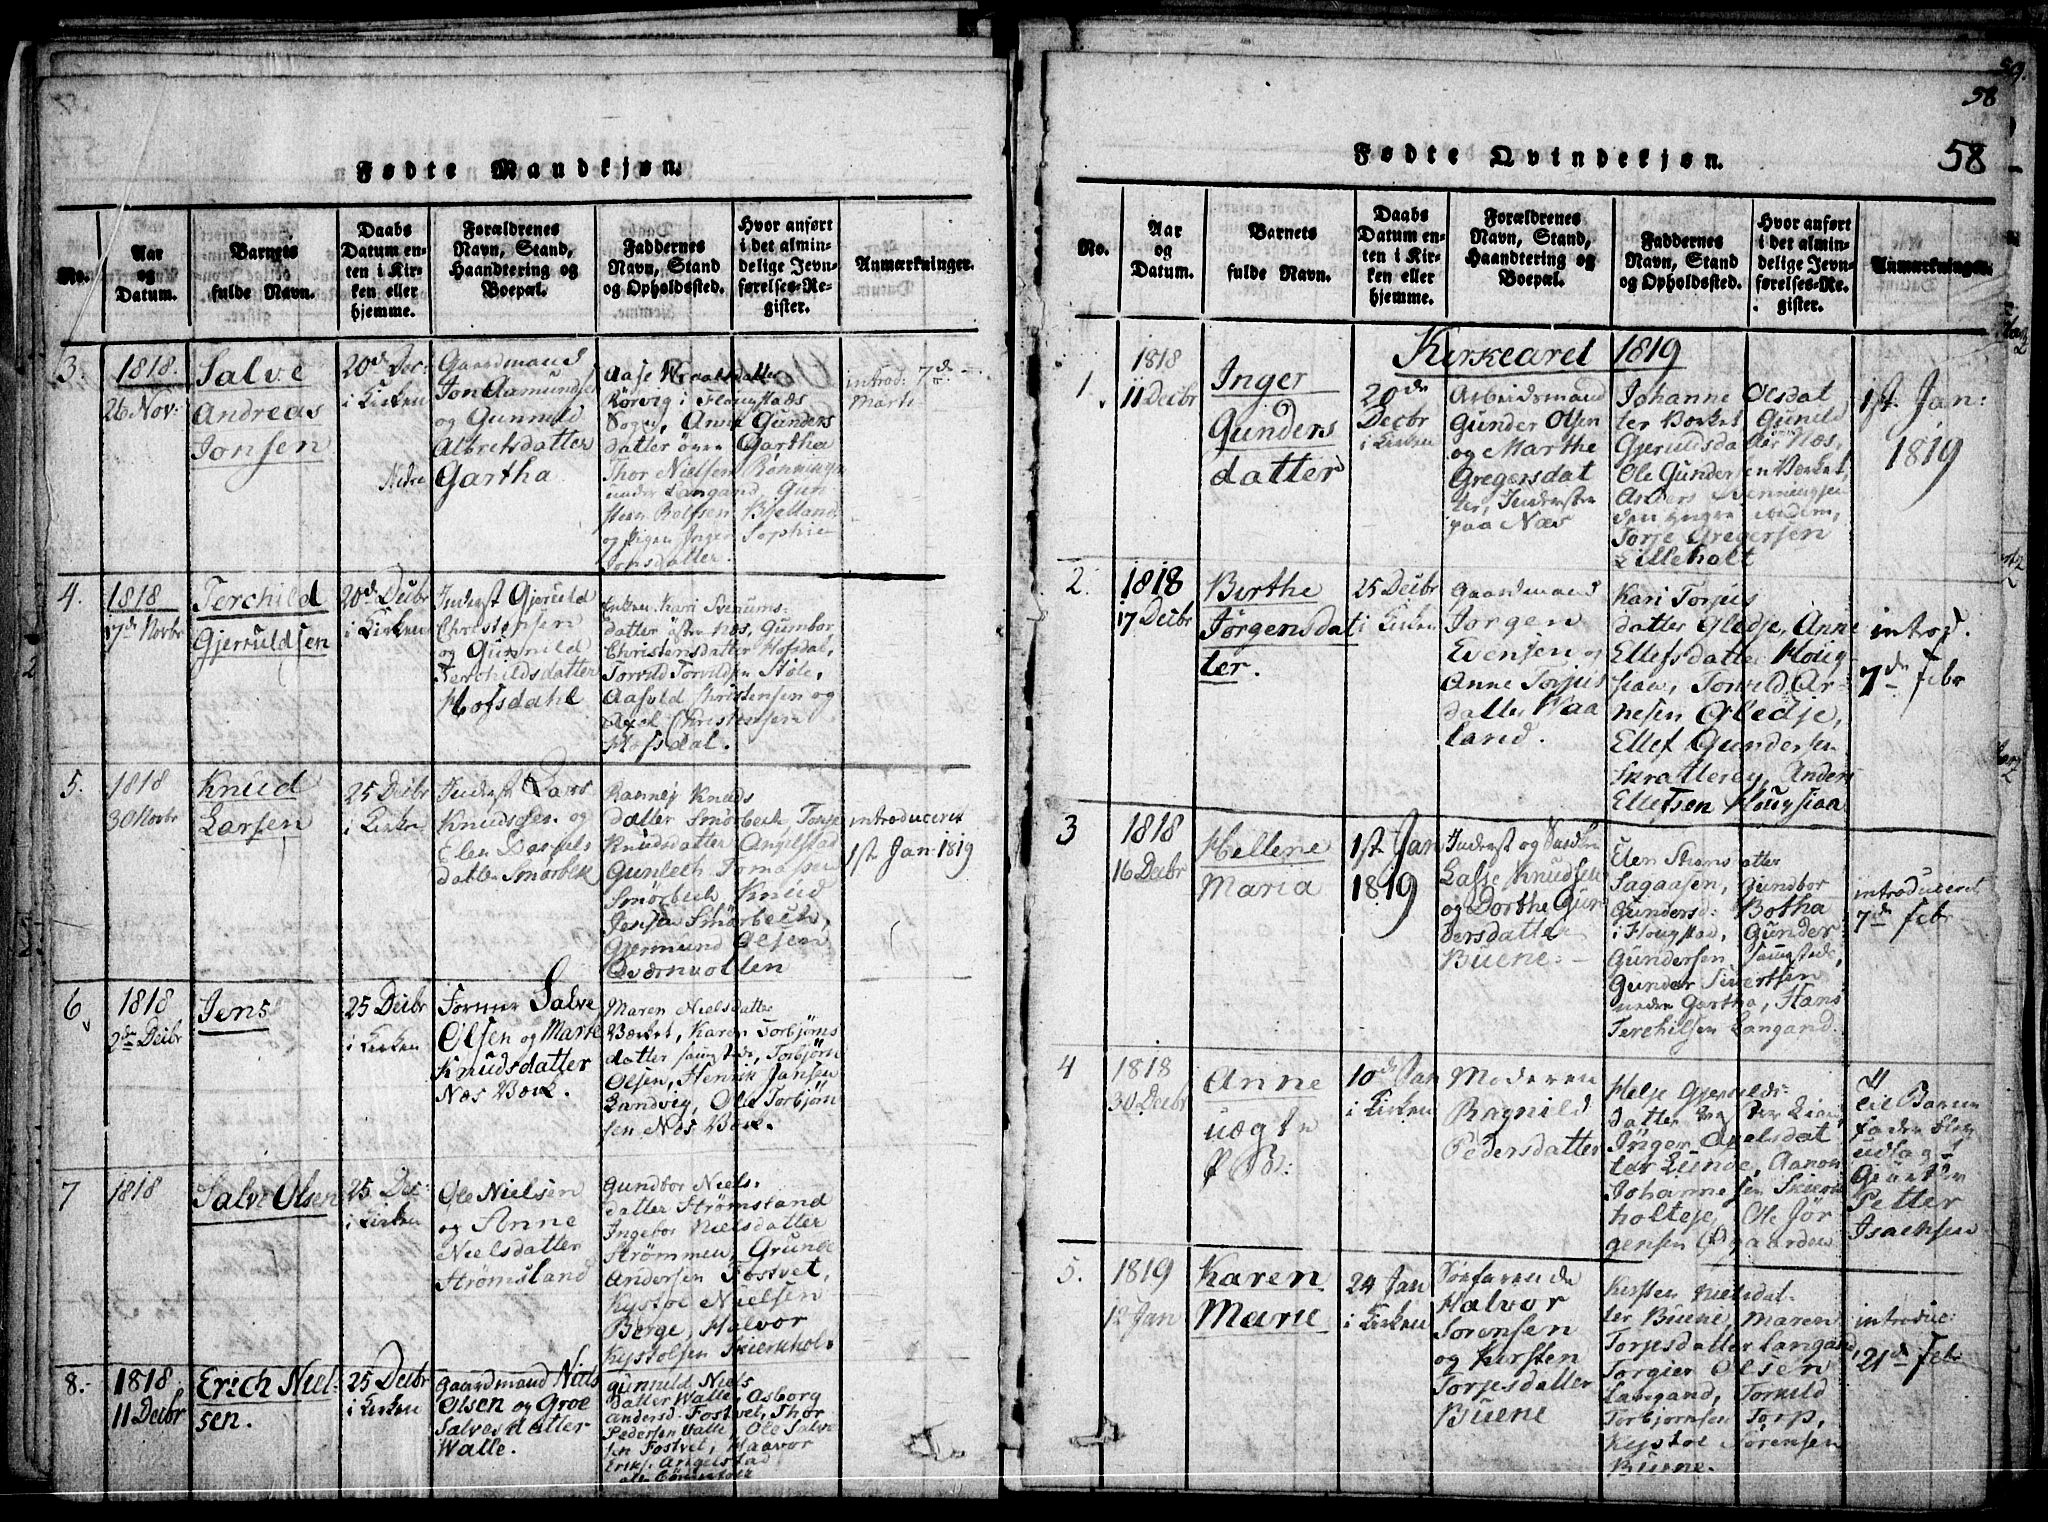 Fødte Mandkjøn.
No.
Aar
og
Datum.
Barnets
fulde Navn.
Daabs
Datum en-
ten i Kir-
ken eller
hjemme.
Forældrenes
Navn, Stand,
Haandtering og
Boepæl.
Faddernes
Navn, Stand
og Opholdssted.
Hvor anført
i det almin-
delige Jevn-
førelses-Re-
gister.
Anmærkninger.
3.
1818.
26 Nov:
Salve
Andreas
Jonsen
20de Dec:
i Kirken
Gaardmand
Jon Aamundsen
og Gunnild
Albretsdatter
Nedre Gartha
Aase
Rørvig i Flougstads
Sogn, Anne Gunders
datter övre Gartha
Thor Nielsen Rønningen
under Langand Gun
Rolfsen Bjelland
og Pigen Inger Sophie
Jonsdatter.
introd: 7de
Marti
4.
1818
17de Novbr
Terchild
Gjerruldsen
20de Decbr
i Kirken
Inderst Gjeruld
Christensen
og Gunnild
Terchildsdatter
Hofsdahl
Enken Kari
datter östre Næs, Gumbor
Christensdatter Hofsdal,
Torvild Torvildsen Höle,
Aasuld Christensen og
Axel Christensen
Hofsdal.
5.
1818
30 Novbr
Knud
Larsen
25 Decbr
i Kirken
Inderst Lars
Knudsen og
Elen Daniels
datter Smörbek
Rannej Knuds
datter Smörbech, Torje
Knudsdatter Angelstad
Gunlech Tomassen
Smörbech Knud
Jensen Smörbech,
Gjermund Olsen
Qværnvollen
introduceret
1ste Jan: 1819
6
1818
2de Decbr
Jens
25 Decbr
i Kirken
Former Salve
Olsen og Marie
Knudsdatter
Næs Værk.
Maren Nielsdatter
Værket, Karen Torbjörns
datter Saugstade, Torbjörn
Olsen, Henrik Jansen
Landvig, Ole Torbjörn
sen Næs Værk.
7
1818
Salve Olsen
25 Dec:
i Kirken
Ole Nielsen
og Anne
Nielsdatter
Strömsland
Gundbor Niels
datter Strömsland
Ingebor Nielsdatter
Strømmen, Grunde
Andersen Fostvet,
Kystol Nielsen
Berge, Halvor
Kystolsen Skierkhol
8.
1818
11 Decbr
Erich Niel-
sen.
25 Decbr
i Kirken
Gaardmand Niels
Olsen og Groe
Salvesdatter
Walle.
Gunnild Niels
datter Walle, Asborg
Andersd. Fostvet, Thor
Pedersen Valle Ole Salve
sen Fostvet, Haavor
Eriks. Angelstad
59.
58
58
Fødte Qvindekjøn.
No.
Aar
og
Datum.
Barnets
fulde Navn.
Daabs
Datum en-
ten i Kir-
ken eller
hjemme.
Forældrenes
Navn, Stand,
Haandtering og
Boepæl.
Faddernes
Navn, Stand
og Opholdssted.
Hvor anført
i det almin-
delige Jevn-
førelses-Re-
gister.
Anmærkninger.
Kirkeaaret 1819
1.
1818
11 Decbr
Inger
Gunders
datter
20de
Decbr
i Kirken
Arbeidsmand
Gunder Olsen
og Marthe
Gregersdat
ter, Inderster
paa Næs
Johanne Olsdat
ter Værket Gunild
Gjeruldsdatter Næs,
Ole Gundersen Værket,
Asbers Svenningsen
den yngre ibidem,
Torje Gregersen
Lilleholt
1ste Jan:
1819
2.
1818
17 Decbr
Birthe
Jörgensdat
ter.
25 Decbr
i Kirken
Gaardmand
Jørgen
Evensen og
Anne Torjus
datter Waa
land.
Kari Torjus
datter Gledje, Anne
Ellefsdatter Houg-
siaa, Tonvild Ar-
nesen Gledje,
Ellef Gundersen
Skratterøy, Anders
Ellefsen Hougsiaa
introd.
7de Febr
3
1818
16 Decbr
Hellene
Maria
1ste Jan
1819
Inderst og
Lasse Knudsen
og Dorthe Gun
dersdatter
Buene.
Elen
Sagaasen, Gundbor
Gundersd: Botha
i Flougstad, Gunder
Gundersen Saugstade,
Gunder Sivertsen
nedre Gartha, Hans
Terchilsen Langand.
introduceret
7de Febr
4
1818
30 Decbr
Anne
uægte
P B:
10de Jan
i Kirken
Moderen
Ragnild
Pedersdatter
Helje Gjeruldsdatter
Jönger Axelsdat
ter Lunde, Aanon
Johannesen Skierk
holteje, Ole Jör
gensen Ögaarden
til Barne
fader blev
udlagt
Petter
Isachsen
5.
1819
12 Jan
Karen
Marie
24 Jan
i Kirken
Söefarende
Halvor
Sörensen
og Kirsten
Torjesdatter
Buene
Kirsten Nielsdat-
ter Buene, Maren
Torjesdatter Langand,
Torgier Olsen
Langand, Torkild
Torbjornsen Torp,
Kystol Sörensen
Buene.
introduc:
21de Febr